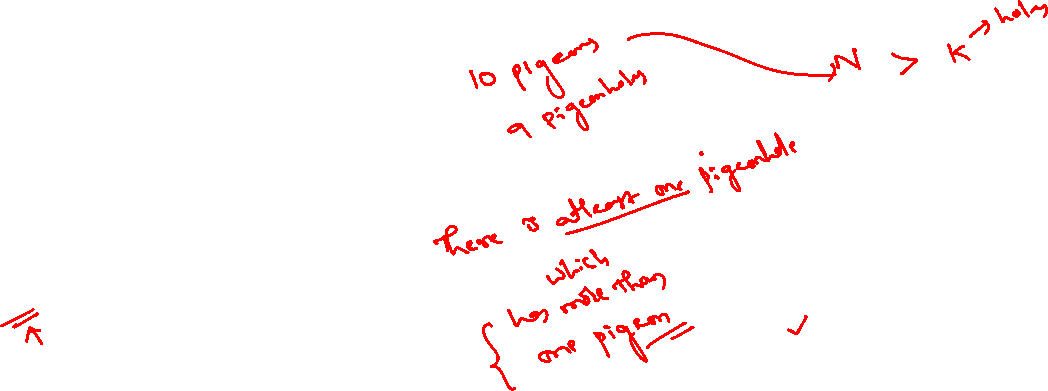 10 pigeons → N > K → holes
9 pigeonholes
There is atleast one pigeonhole
which
has more than
one pigeon